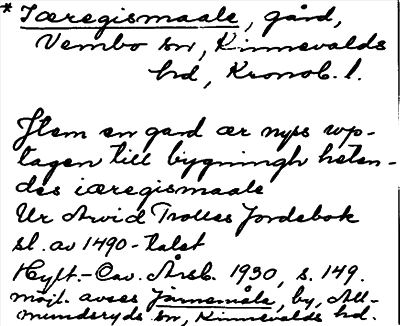 * Iæregismaale, gård,
Vembo sn, Kinnevalds
hd, Kronob. l.
Item en gard ær nyps wp-
tagen till bygningh heten-
des iæregismaale
Ur Arvid Trolles Jordebok
sl. av 1490-talet
Hylt.-Cav. Årsb. 1930, s. 149.
möjl. avses Järnemåla, by, Al-
mundsryds sn, Kinnevalds hd.